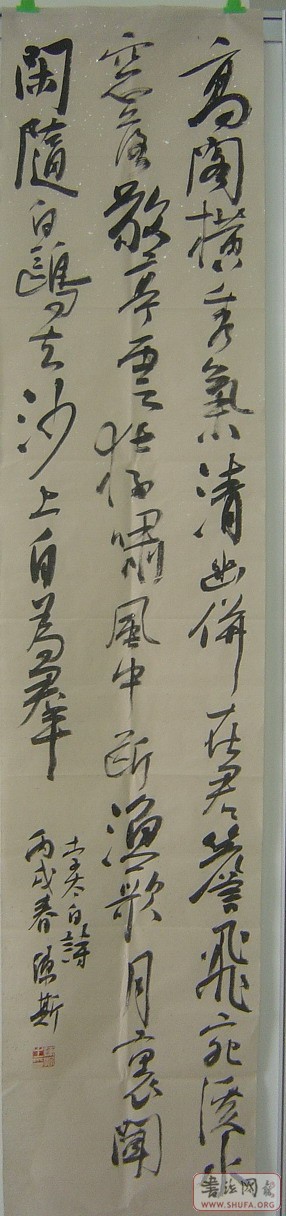 高閣橫秀氣清幽併在君簷飛宛溪水
窓落敬亭雲猿嘯風中斷漁歌月裏聞
閑隨白鷗去沙上自為群
李太白詩
丙戌春
书法网
WWW.SHUFA.ORG